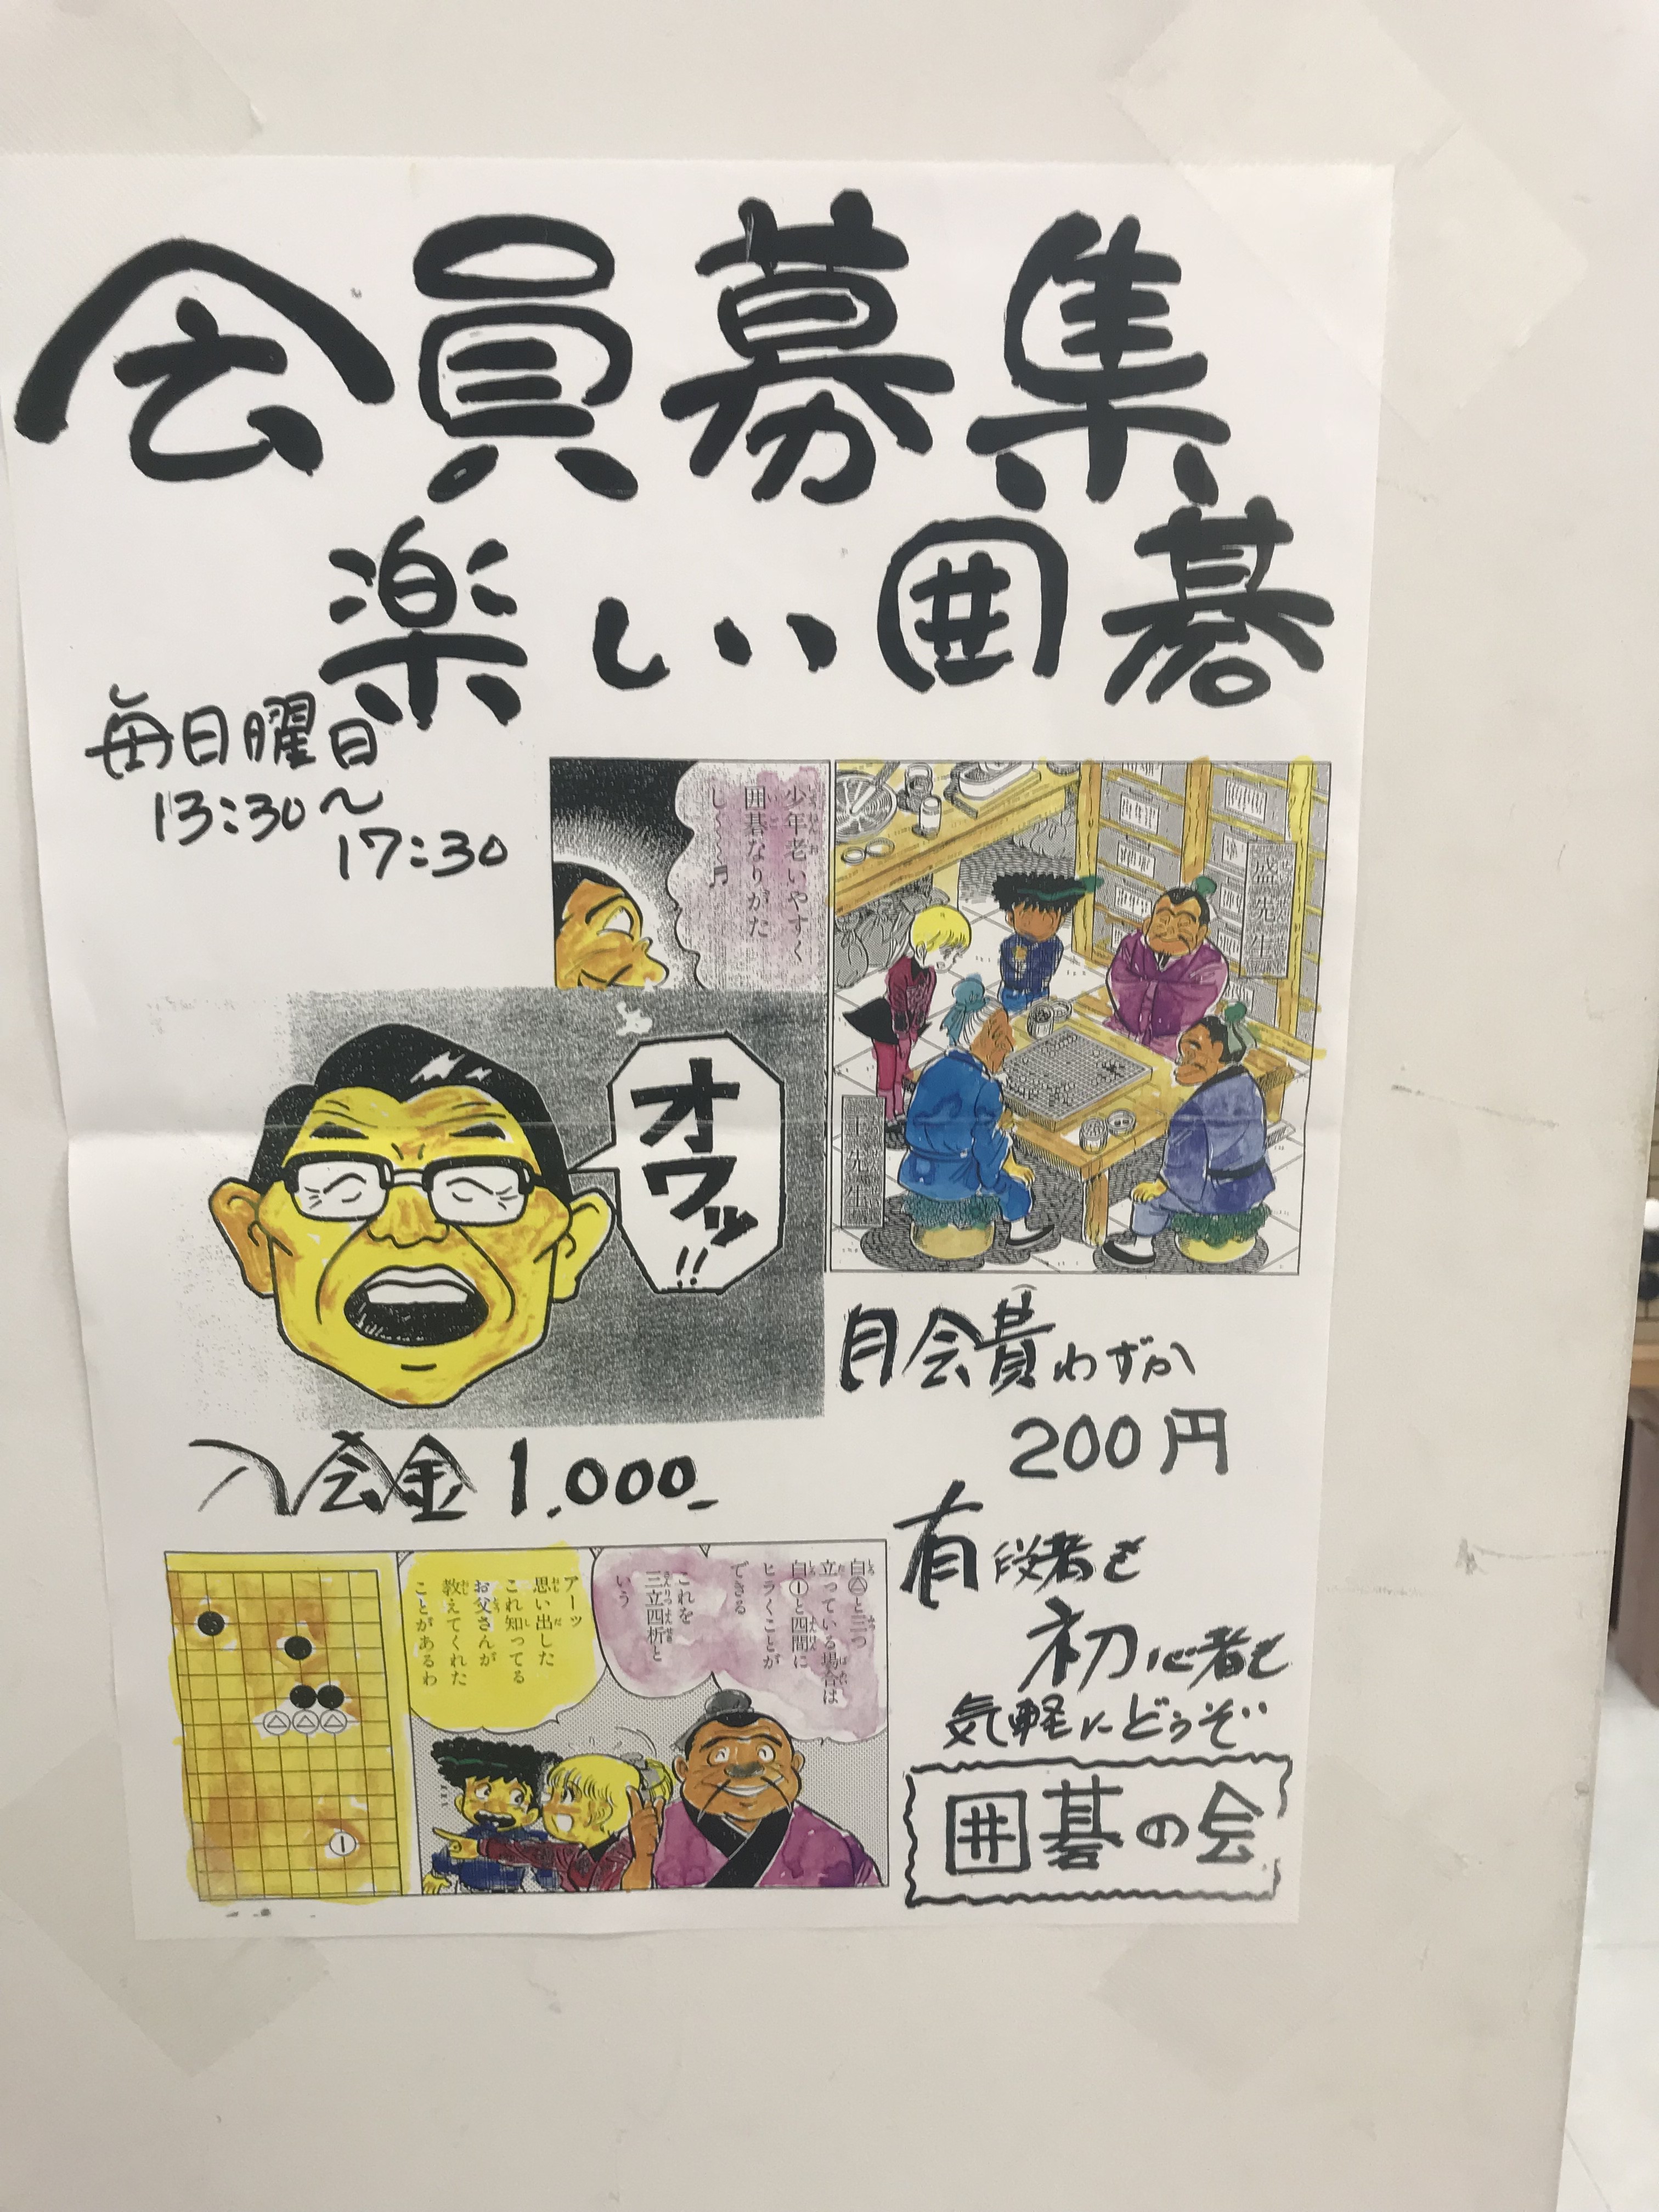 会員募集
楽しい囲碁
毎日曜日
13:30〜
17:30
少年老いやすく
囲碁なりがた
し〜〜♬
盛先生
王先生
オワッ!!
月会費わずか
200円
入会金 1,000-
有段者も
初心者も
気軽にどうぞ
囲碁の会
白△と三つ
立っている場合は
白①と四間に
ヒラくことが
できる
これを
三立四析と
いう
アーッ
思い出した
これ知ってる
お父さんが
教えてくれた
ことがあるわ
1